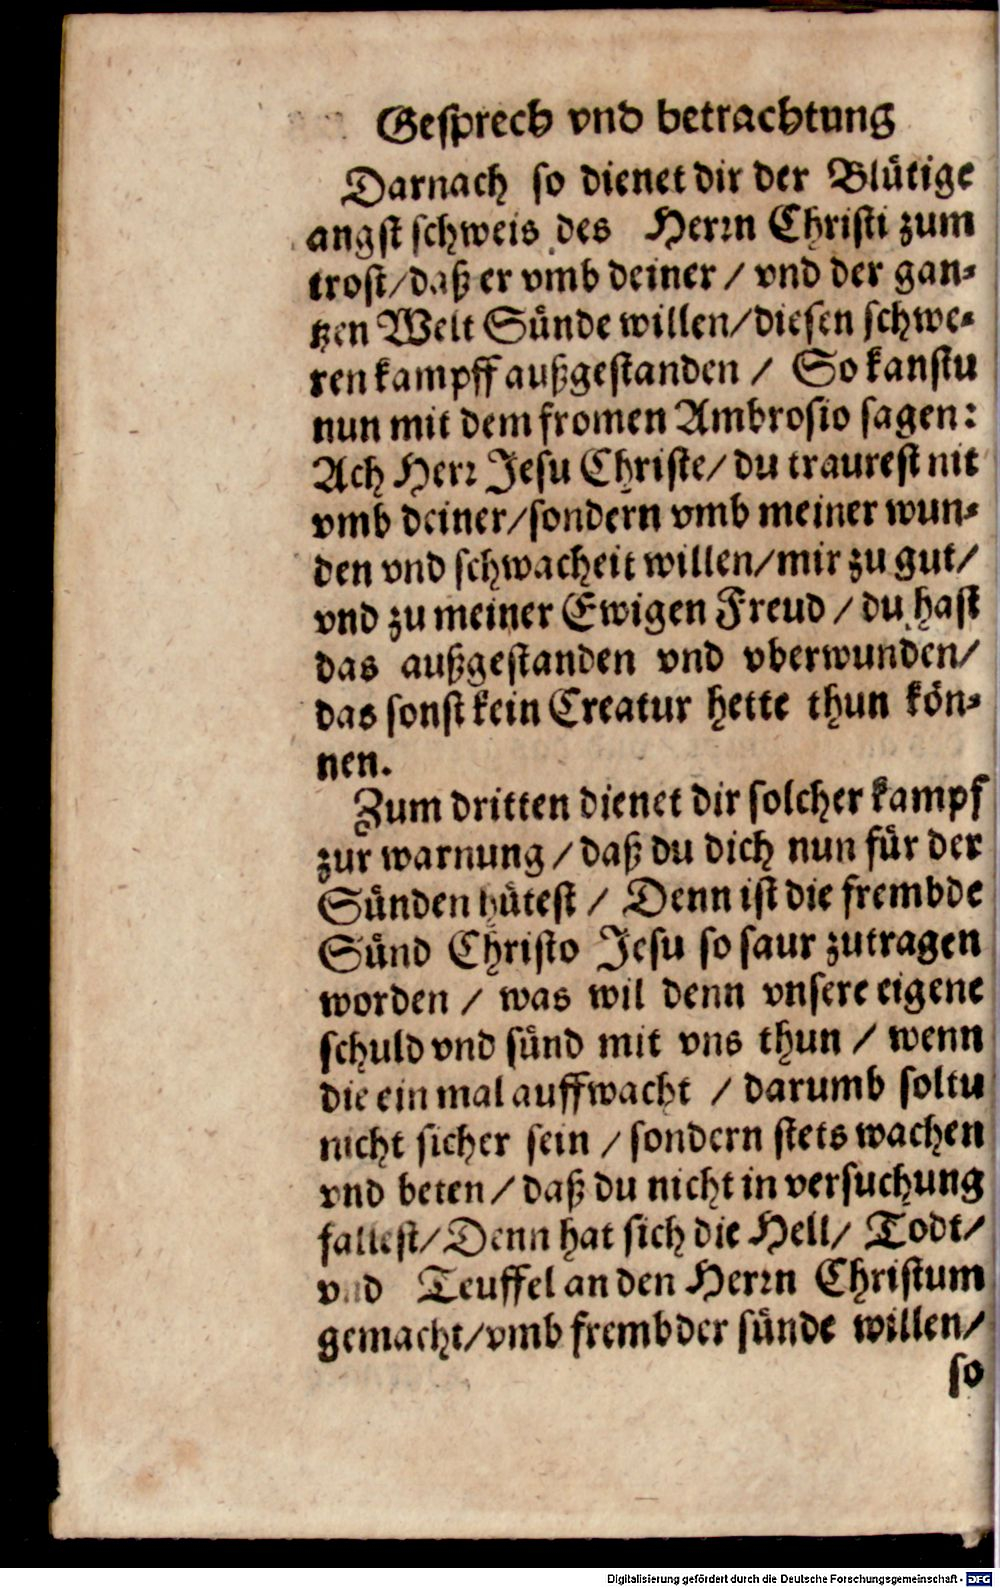 Gesprech vnd betrachtung
Darnach so dienet dir der Blütige
angst schweis des Herrn Christi zum
trost/daß er vmb deiner / vnd der gan-
tzen Welt Sünde willen/diesen schwe-
ren kampff außgestanden / So kanstu
nun mit dem fromen Ambrosio sagen:
Ach Herr Jesu Christe/ du traurest nit
vmb deiner/sondern vmb meiner wun-
den vnd schwacheit willen/mir zu gut/
vnd zu meiner Ewigen Freud / du hast
das außgestanden vnd vberwunden/
das sonst kein Creatur hette thun kön-
nen.
Zum dritten dienet dir solcher kampf
zur warnung / daß du dich nun für der
Sünden hütest / Denn ist die frembde
Sünd Christo Jesu so saur zutragen
worden / was wil denn vnsere eigene
schuld vnd sünd mit vns thun / wenn
die ein mal auffwacht / darumb soltu
nicht sicher sein / sondern stets wachen
vnd beten / daß du nicht in versuchung
fallest/ Denn hat sich die Hell/ Todt/
vnd Teuffel an den Herrn Christum
gemacht/vmb frembder sünde willen/
so
Digitalisierung gefördert durch die Deutsche Forschungsgemeinschaft - DFG